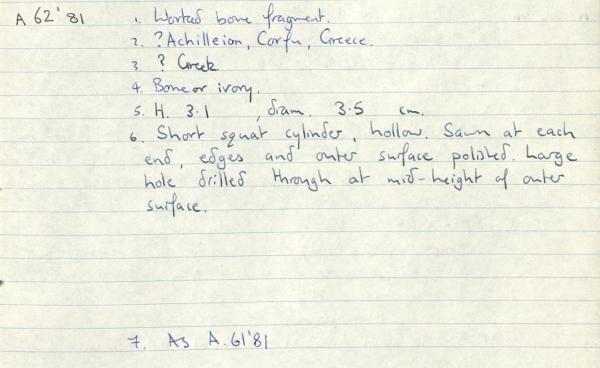 A 62'81
1. Worked bone fragment.
2. ?Achilleion, Corfu, Greece.
3. ? Greek
4. Bone or ivory.
5. H. 3.1 , diam. 3.5 cm.
6. Short squat cylinder, hollow. Sawn at each
end, edges and outer surface polished. Large
hole drilled through at mid-height of outer
surface.
7. As A.61'81